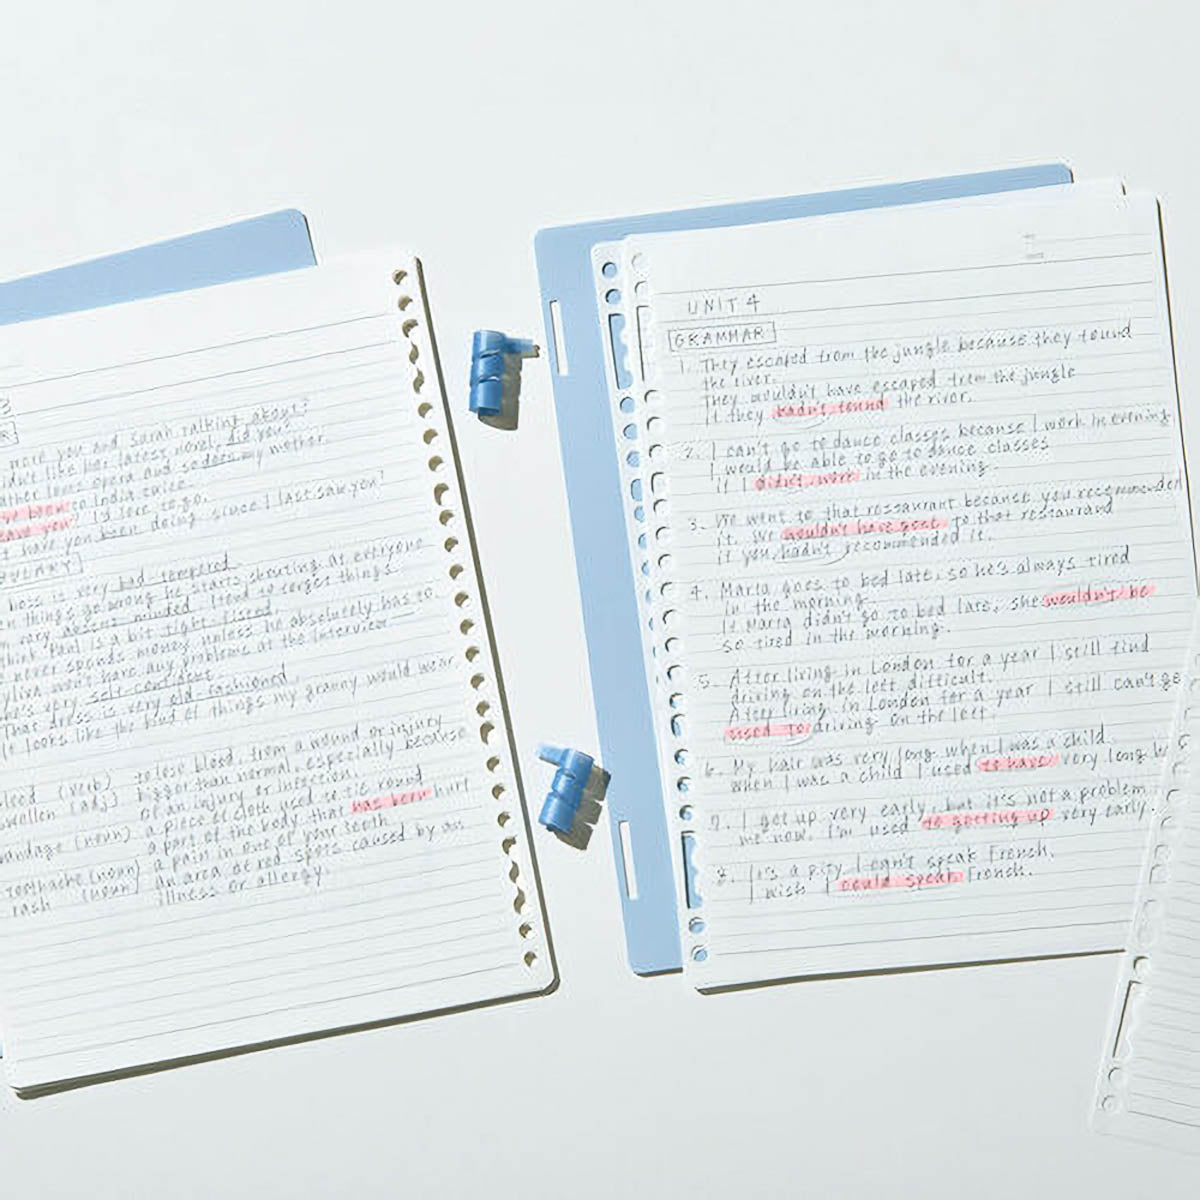 3
R
were you and Sarah talking about?
didn't like her latest novel, did you?
father loves opera and so does my mother.
ve been to India twice.
I'd love to go.
t have you been doing since I last saw you?
BULARY
boss is very bad tempered.
en things go wrong he starts shouting at everyone
very absent minded. I tend to forget things.
think Paul is a bit tight-fisted.
never spends money unless he absolutely has to.
ylvia won't have any problems at the interview.
he's very self-confident.
That dress is very old-fashioned.
It looks like the kind of things my granny would wear.
leed (verb) to lose blood, from a wound or injury
swollen (adj) bigger than normal, especially because
of an injury or infection.
andage (noun) a piece of cloth used to tie round
a part of the body that has been hurt
toothache (noun) a pain in one of your teeth
rash (noun) an area of red spots caused by an
illness or allergy.
UNIT 4
GRAMMAR
1. They escaped from the jungle because they found
the river.
they wouldn't have escaped from the jungle
if they hadn't found the river.
2. I can't go to dance classes because I work in evening
I would be able to go to dance classes
if I didn't work in the evening.
3. We went to that restaurant because you recommended
it. We wouldn't have goet to that restaurand
if you hadn't recommended it.
4. Marta goes to bed late, so he's always tired
in the morning.
If Marta didn't go to bed late, she wouldn't be
so tired in the morning.
5. After living in London for a year I still find
driving on the left difficult.
After living in London for a year I still can't ge
used to driving on the left.
6. My hair was very long when I was a child.
when I was a child I used to have very long h
7. I get up very early, but it's not a problem
me now. I'm used to getting up very early.
8. It's a pity I can't speak French.
I wish I could speak French.